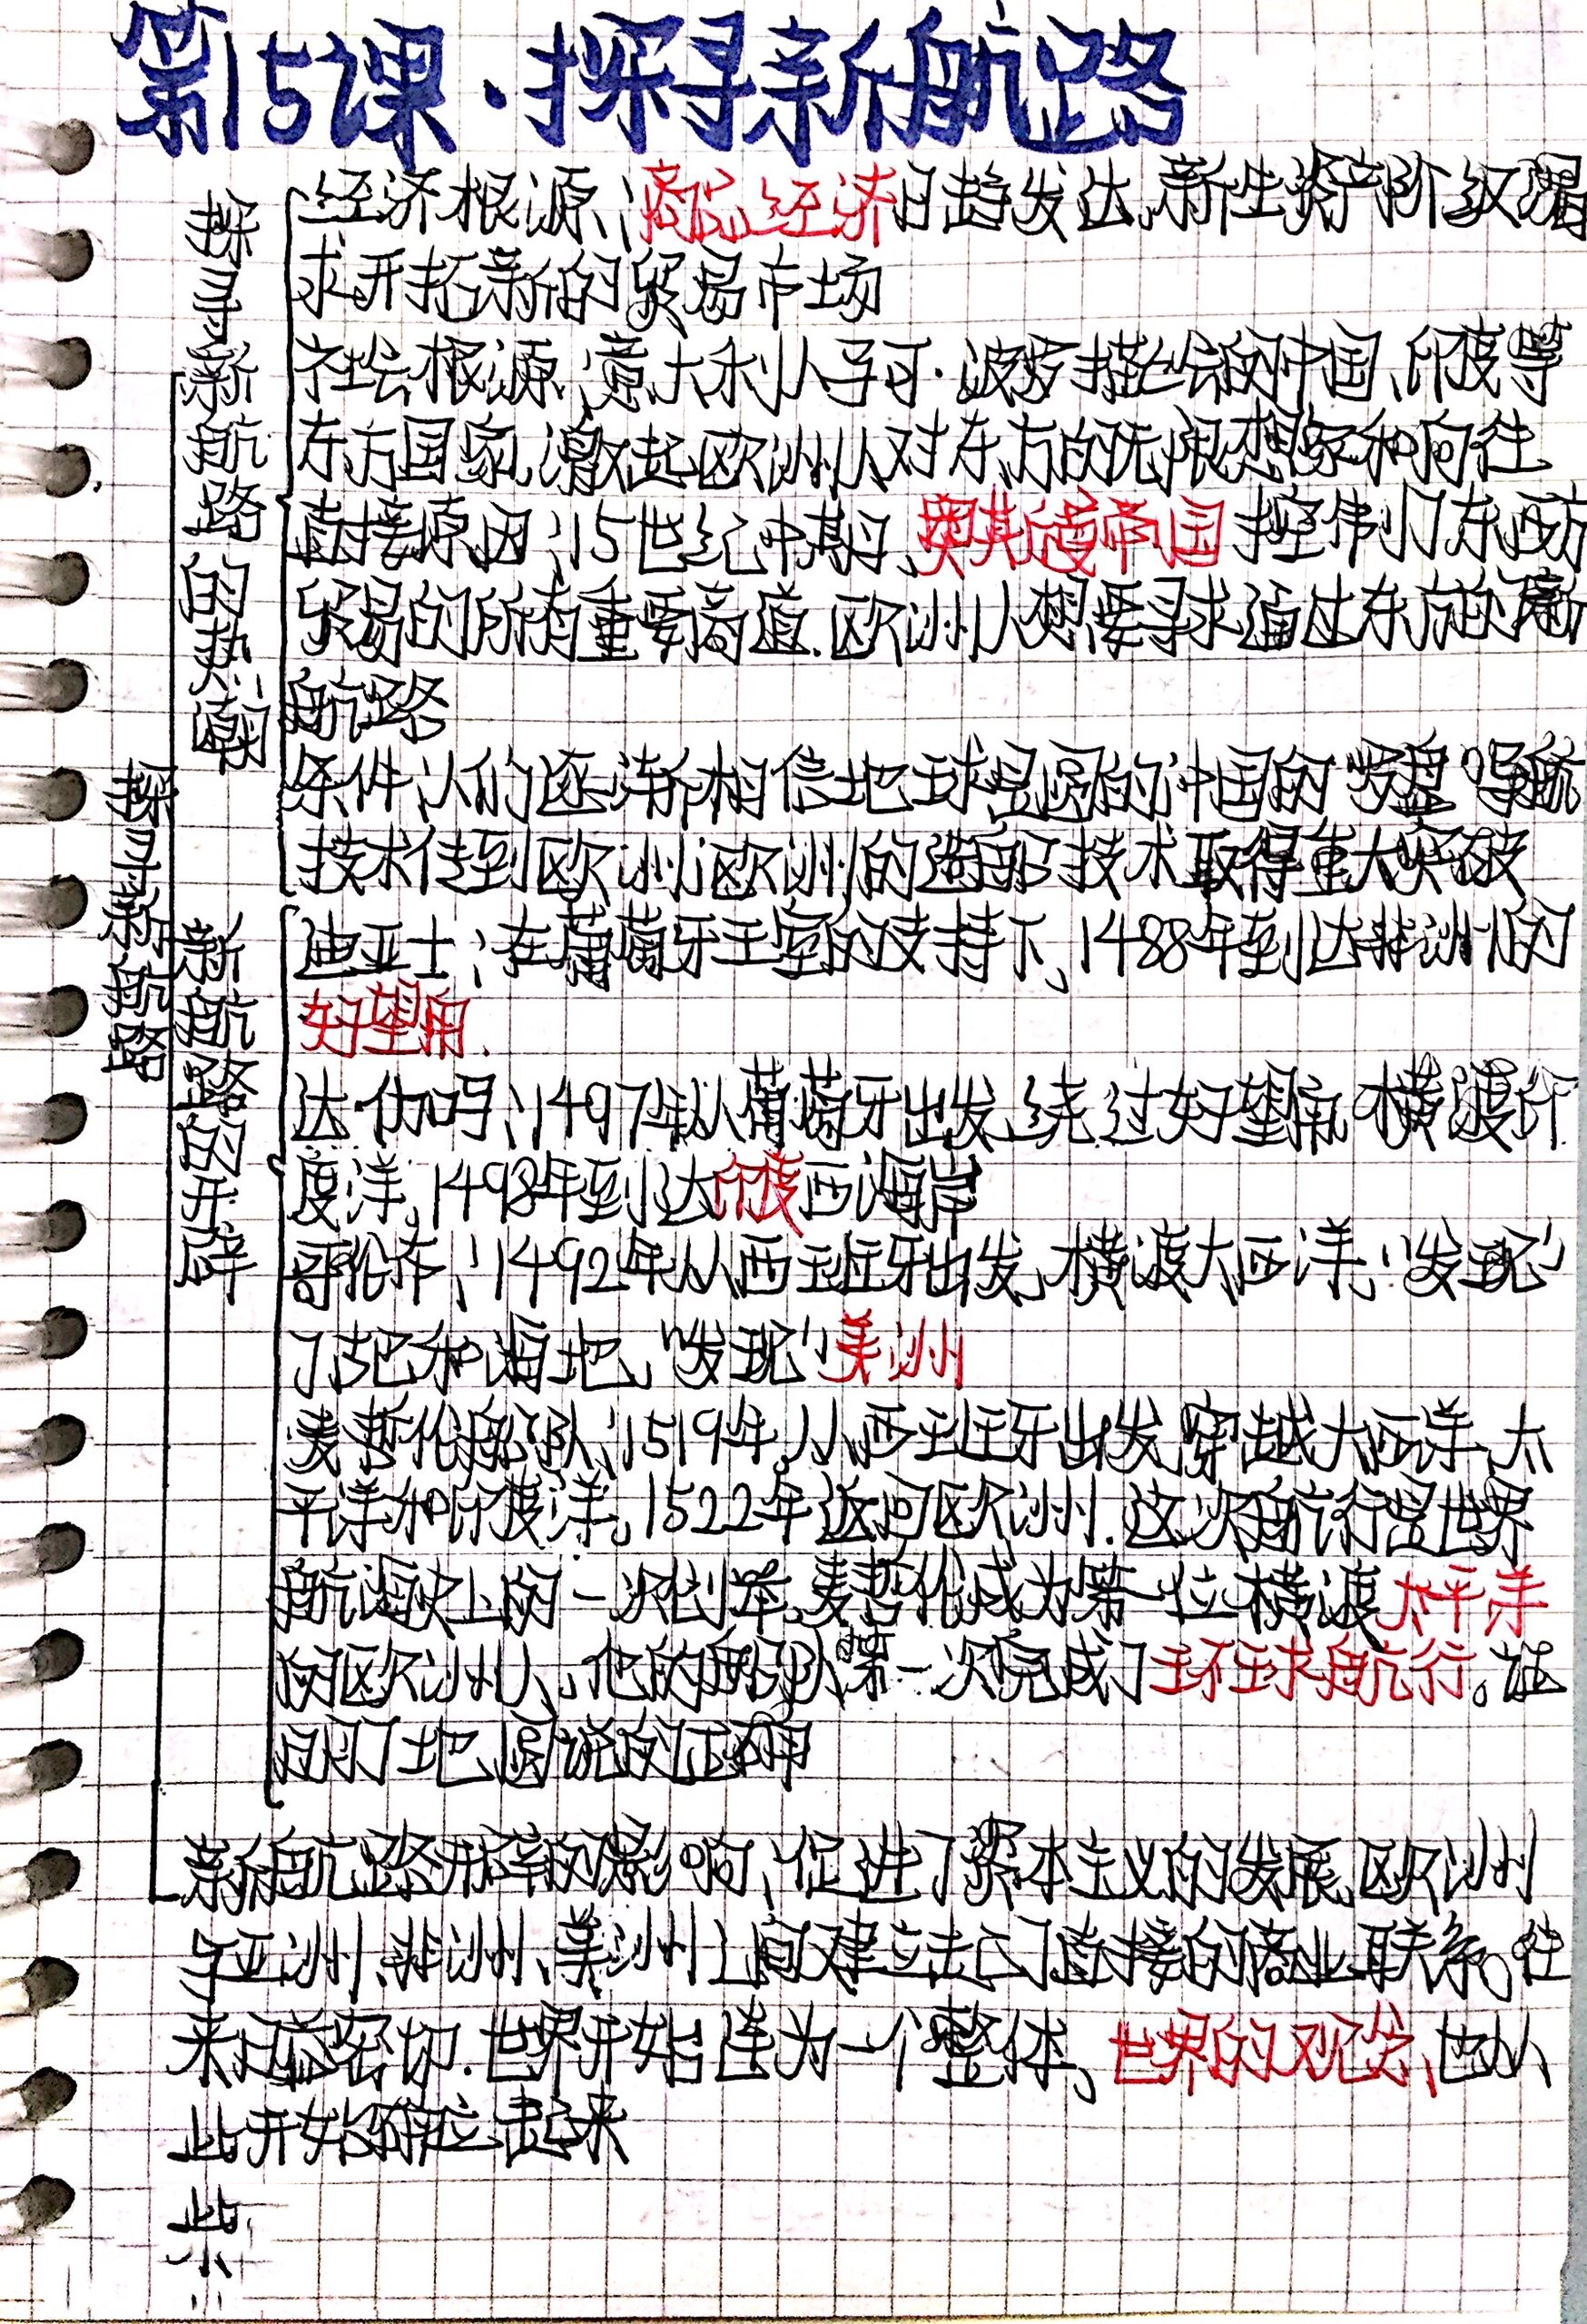 第15课·探寻新航路
探寻新航路
探寻新航路的热潮
经济根源:商品经济日趋发达,新生资产阶级渴
求开拓新的贸易市场
社会根源:意大利人马可·波罗描绘的中国、印度等
东方国家,激起欧洲人对东方的无限想象和向往
直接原因:15世纪中期,奥斯曼帝国控制了东西方
贸易的所有重要商道.欧洲人想要寻求通过东方的新
航路
条件:人们逐渐相信地球是圆的;中国的罗盘导航
技术传到欧洲;欧洲的造船技术取得重大突破
新航路的开辟
迪亚士:在葡萄牙王室的支持下,1488年到达非洲的
好望角.
达·伽马:1497年从葡萄牙出发,绕过好望角,横渡印
度洋,1498年到达印度西海岸
哥伦布:1492年从西班牙出发,横渡大西洋,"发现"
了古巴和海地,"发现"美洲
麦哲伦船队:1519年,从西班牙出发,穿越大西洋、太
平洋和印度洋,1522年返回欧洲.这次航行是世界
航海史上的一次创举,麦哲伦成为第一位横渡太平洋
的欧洲人,他的船队第一次完成了环球航行。证
明了地圆说的正确
新航路开辟的影响:促进了资本主义的发展,欧洲
与亚洲、非洲、美洲之间建立起了直接的商业联系。往
来日益密切.世界开始连为一个整体,世界的观念,也从
此开始确立起来
此